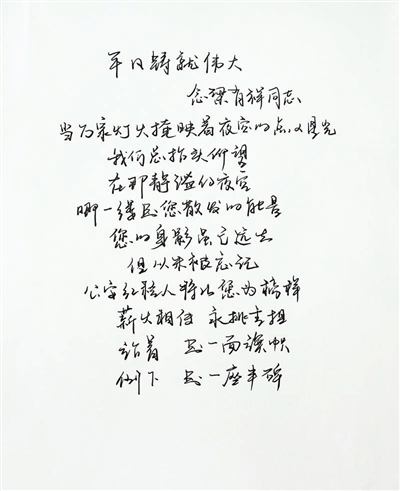 平凡铸就伟大
念梁肖祥同志
当万家灯火掩映着夜空的点点星光
我们总抬头仰望
在那静谧的夜空
哪一缕是您散发的能量
您的身影虽已远去
但从未被忘记
公字红鞋人将以您为榜样
薪火相传 永挑重担
站着 是一面旗帜
倒下 是一座丰碑